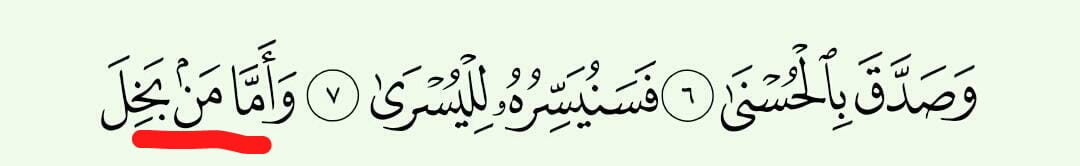 وَصَدَّقَ بِٱلْحُسْنَىٰ ٦ فَسَنُيَسِّرُهُۥ لِلْيُسْرَىٰ ٧ وَأَمَّا مَنۢ بَخِلَ